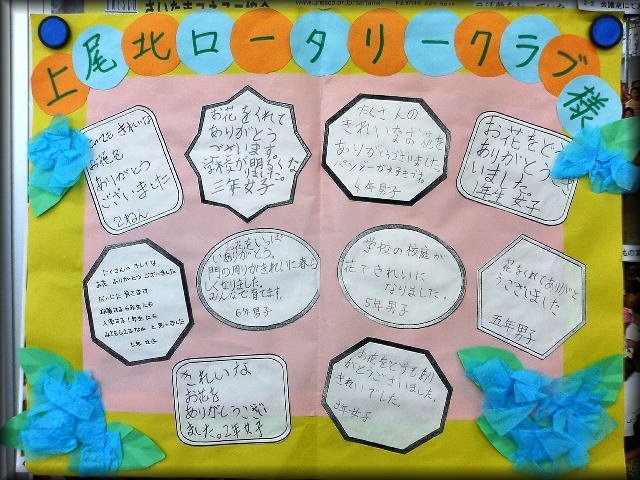 上尾北ロータリークラブ様
とても きれいな
お花を
ありがとう
ございました
2ねん
お花をくれて
ありがとう
ございます。
学校が明るくな
りました。
三年女子
たくさんの
きれいなお花を
ありがとうございました。
パンジーがすてきでした
4年男子
お花をどうも
ありがとうござ
いました。
1年生 女子
お花
いありがとう。
門の周りがきれいに春ら
しくなりました。
みんなで育てます。
6年男子
学校の校庭が
花できれいに
なりました。
5年男子
花をくれてありがと
うございました
五年男子
たくさんのきれいな
お花 ありがとうございました
だいじに育てます
卒業する6年生にも
入学する1年生にも
きれいな
お花を
ありがとうござい
ました。2年女子
お花をどうもあり
がとうございました。
きれいでした。
3年女子